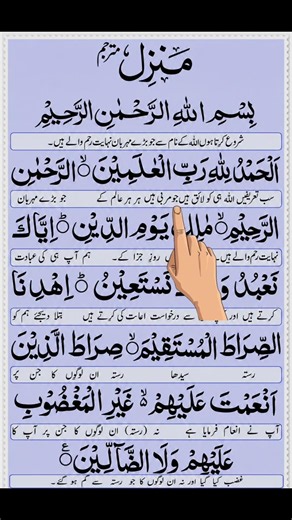 منزل مترجم
بِسْمِ اللهِ الرَّحْمٰنِ الرَّحِيْمِ
شروع کرتا ہوں اللہ کے نام سے جو بڑے مہربان نہایت رحم والے ہیں۔
اَلْحَمْدُ لِلّٰهِ رَبِّ الْعٰلَمِيْنَ ۙ الرَّحْمٰنِ
سب تعریفیں اللہ ہی کو لائق ہیں جو مربی ہیں ہر ہر عالم کے جو بڑے مہربان
الرَّحِيْمِ ۙ مٰلِكِ يَوْمِ الدِّيْنِ ؕ اِيَّاكَ
نہایت رحم والے ہیں۔ روزِ جزا کے۔ ہم آپ ہی کی عبادت
نَعْبُدُ نَسْتَعِيْنُ ؕ اِهْدِنَا
کرتے ہیں اور درخواست اعانت کی کرتے ہیں بتلا دیجئے ہم کو
الصِّرَاطَ الْمُسْتَقِيْمَ ۙ صِرَاطَ الَّذِيْنَ
رستہ سیدھا رستہ ان لوگوں کا جن پر
اَنْعَمْتَ عَلَيْهِمْ ۙ غَيْرِ الْمَغْضُوْبِ
آپ نے انعام فرمایا ہے نہ (رستہ) ان لوگوں کا جن پر آپ کا
عَلَيْهِمْ وَلَا الضَّآلِّيْنَ ۧ
غضب کیا گیا اور نہ ان لوگوں کا جو رستہ سے گم ہو گئے۔